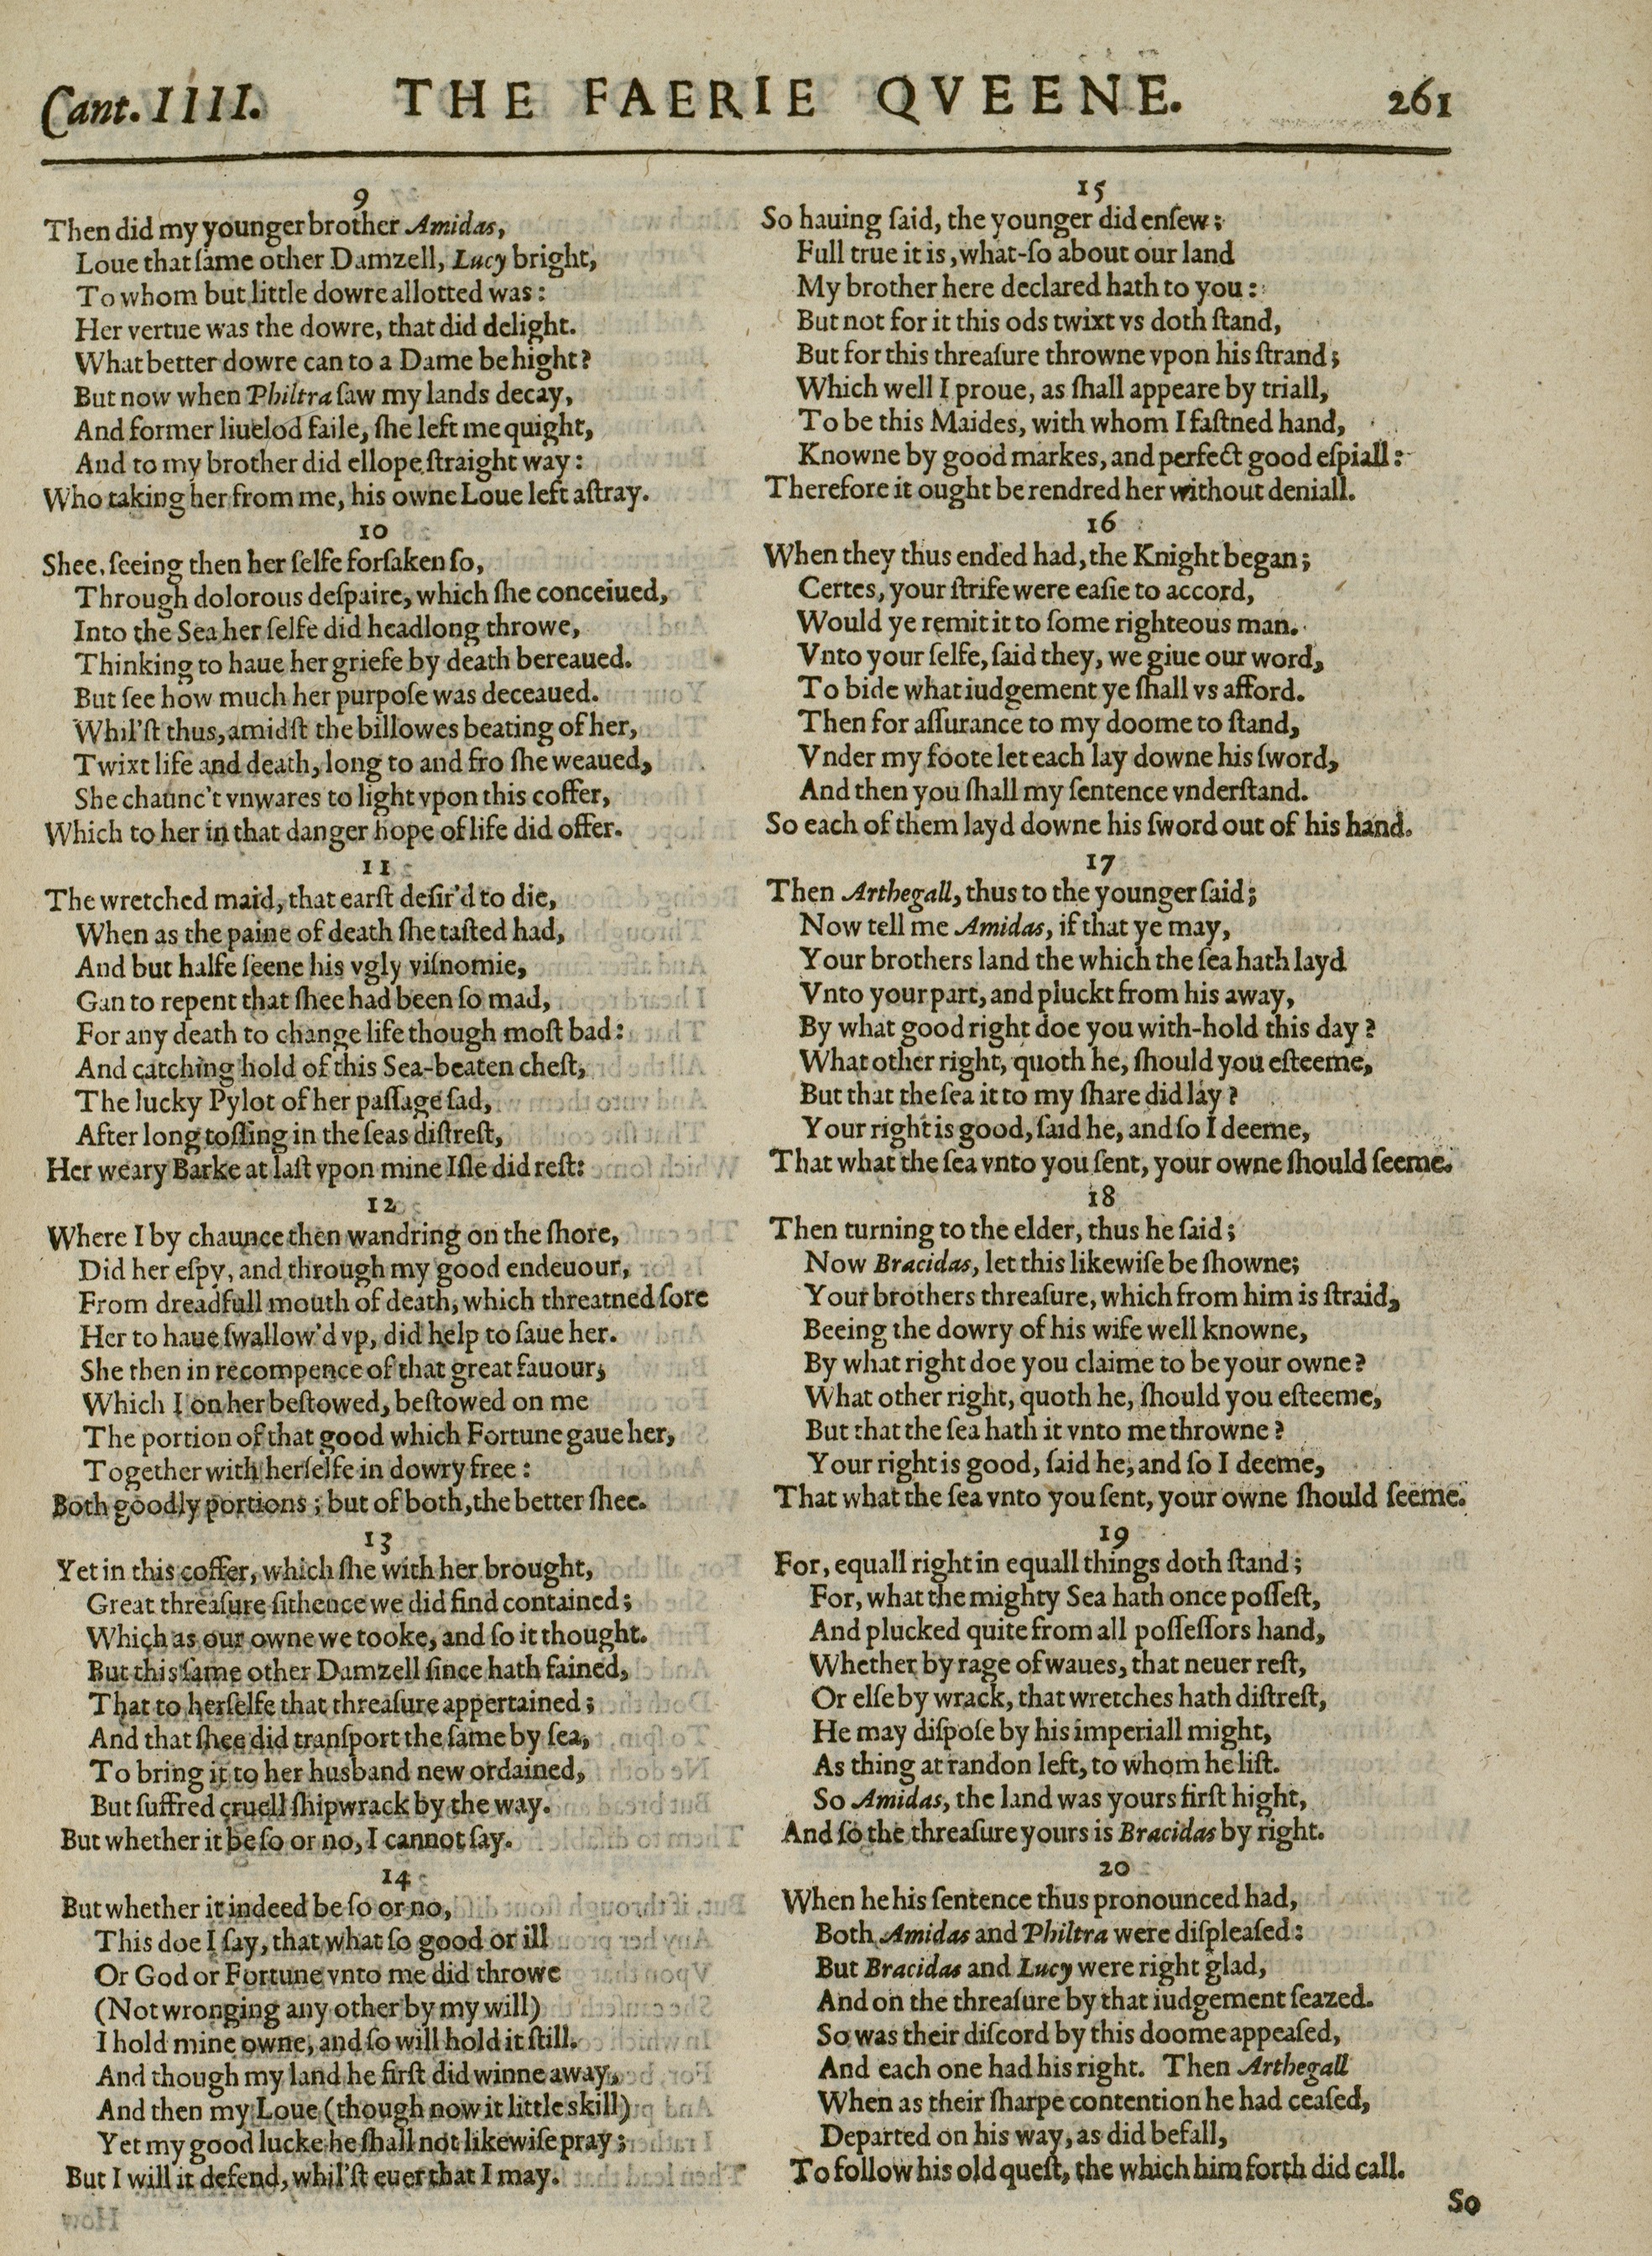 Cant. IIII. THE FAERIE QVEENE. 261
9
Then did my younger brother Amidas,
Loue that ſame other Damzell, Lucy bright,
To whom but little dowre allotted was:
Her vertue was the dowre, that did delight.
What better dowre can to a Dame be hight?
But now when Philtra ſaw my lands decay,
And former liuelod faile, ſhe left me quight,
And to my brother did ellope ſtraight way:
Who taking her from me, his owne Loue left aſtray.
10
Shee, ſeeing then her ſelfe forſaken ſo,
Through dolorous deſpaire, which ſhe conceiued,
Into the Sea her ſelfe did headlong throwe,
Thinking to haue her griefe by death bereaued.
But ſee how much her purpoſe was deceaued.
Whil'ſt thus, amidſt the billowes beating of her,
Twixt life and death, long to and fro ſhe weaued,
She chaunc't vnwares to light vpon this coffer,
Which to her in that danger hope of life did offer.
11
The wretched maid, that earſt deſir'd to die,
When as the paine of death ſhe taſted had,
And but halfe ſeene his vgly viſnomie,
Gan to repent that ſhee had been ſo mad,
For any death to change life though moſt bad:
And catching hold of this Sea-beaten cheſt,
The lucky Pylot of her paſſage ſad,
After long toſſing in the ſeas diſtreſt,
Her weary Barke at laſt vpon mine Iſle did reſt:
12
Where I by chaunce then wandring on the ſhore,
Did her eſpy, and through my good endeuour,
From dreadfull mouth of death, which threatned ſore
Her to haue ſwallow'd vp, did help to ſaue her.
She then in recompence of that great fauour,
Which I on her beſtowed, beſtowed on me
The portion of that good which Fortune gaue her,
Together with herſelfe in dowry free:
Both goodly portions; but of both, the better ſhee.
13
Yet in this coffer, which ſhe with her brought,
Great threaſure ſithence we did find contained;
Which as our owne we tooke, and ſo it thought.
But this ſame other Damzell ſince hath fained,
That to herſelfe that threaſure appertained;
And that ſhee did tranſport the ſame by ſea,
To bring it to her husband new ordained,
But ſuffred cruell ſhipwrack by the way.
But whether it be ſo or no, I cannot ſay.
14
But whether it indeed be ſo or no,
This doe I ſay, that what ſo good or ill
Or God or Fortune vnto me did throwe
(Not wronging any other by my will)
I hold mine owne, and ſo will hold it ſtill.
And though my land he firſt did winne away,
And then my Loue (though now it little skill)
Yet my good lucke he ſhall not likewiſe pray;
But I will it defend, whil'ſt euer that I may.
15
So hauing ſaid, the younger did enſew;
Full true it is, what-ſo about our land
My brother here declared hath to you:
But not for it this ods twixt vs doth ſtand,
But for this threaſure throwne vpon his ſtrand;
Which well I proue, as ſhall appeare by triall,
To be this Maides, with whom I faſtned hand,
Knowne by good markes, and perfect good eſpiall:
Therefore it ought be rendred her without deniall.
16
When they thus ended had, the Knight began;
Certes, your ſtrife were eaſie to accord,
Would ye remit it to ſome righteous man.
Vnto your ſelfe, ſaid they, we giue our word,
To bide what iudgement ye ſhall vs afford.
Then for aſſurance to my doome to ſtand,
Vnder my foote let each lay downe his ſword,
And then you ſhall my ſentence vnderſtand.
So each of them layd downe his ſword out of his hand.
17
Then Arthegall, thus to the younger ſaid;
Now tell me Amidas, if that ye may,
Your brothers land the which the ſea hath layd
Vnto your part, and pluckt from his away,
By what good right doe you with-hold this day?
What other right, quoth he, ſhould you eſteeme,
But that the ſea it to my ſhare did lay?
Your right is good, ſaid he, and ſo I deeme,
That what the ſea vnto you ſent, your owne ſhould ſeeme.
18
Then turning to the elder, thus he ſaid;
Now Bracidas, let this likewiſe be ſhowne;
Your brothers threaſure, which from him is ſtraid,
Beeing the dowry of his wife well knowne,
By what right doe you claime to be your owne?
What other right, quoth he, ſhould you eſteeme,
But that the ſea hath it vnto me throwne?
Your right is good, ſaid he, and ſo I deeme,
That what the ſea vnto you ſent, your owne ſhould ſeeme.
19
For, equall right in equall things doth ſtand;
For, what the mighty Sea hath once poſſeſt,
And plucked quite from all poſſeſſors hand,
Whether by rage of waues, that neuer reſt,
Or elſe by wrack, that wretches hath diſtreſt,
He may diſpoſe by his imperiall might,
As thing at randon left, to whom he liſt.
So Amidas, the land was yours firſt hight,
And ſo the threaſure yours is Bracidas by right.
20
When he his ſentence thus pronounced had,
Both Amidas and Philtra were diſpleaſed:
But Bracidas and Lucy were right glad,
And on the threaſure by that iudgement ſeazed.
So was their diſcord by this doome appeaſed,
And each one had his right. Then Arthegall
When as their ſharpe contention he had ceaſed,
Departed on his way, as did befall,
To follow his old queſt, the which him forth did call.
So